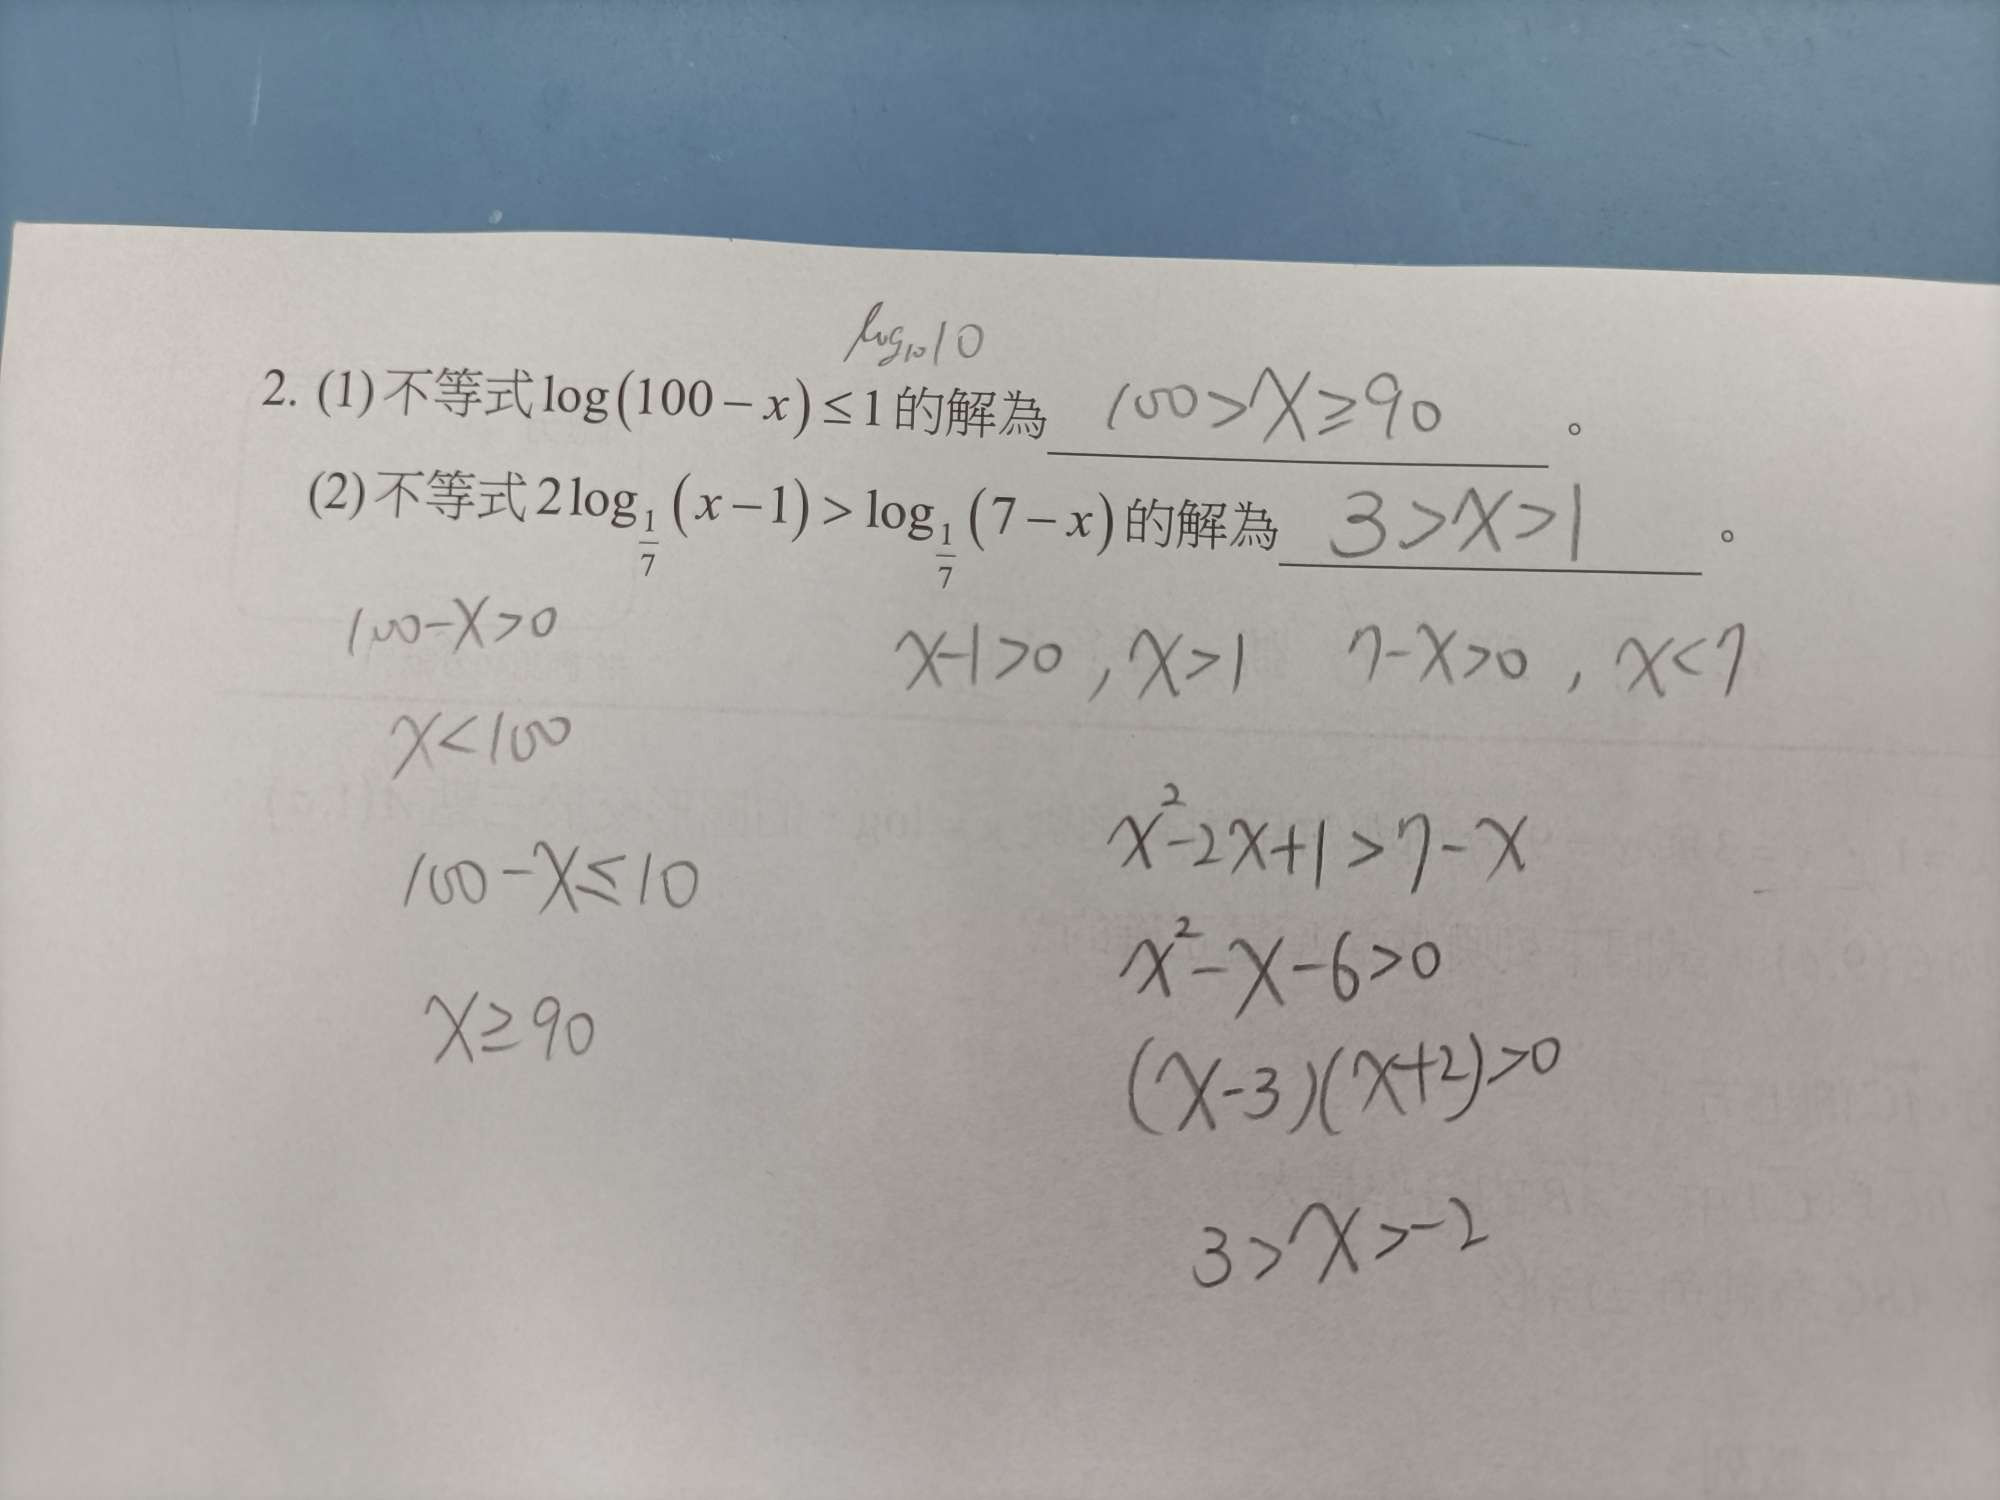 log₁₀10
2. (1) 不等式 log(100 − x) ≤ 1 的解為 100 > x ≥ 90 。
(2) 不等式 2log_{1/7}(x − 1) > log_{1/7}(7 − x) 的解為 3 > x > 1 。
100 − x > 0
x < 100
100 − x ≤ 10
x ≥ 90
x − 1 > 0 , x > 1 7 − x > 0 , x < 7
x² − 2x + 1 > 7 − x
x² − x − 6 > 0
(x − 3)(x + 2) > 0
3 > x > −2